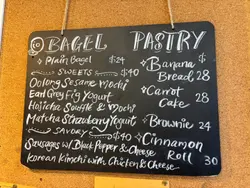 BAGEL
Plain Bagel $24
SWEETS $40
Oolong Sesame Mochi
Earl Grey Fig Yogurt
Hojicha Soufflé & Mochi
Matcha Strawberry Yogurt
SAVORY
Sausages w/ Black Pepper & Cheese
Korean Kimchi with Chicken & Cheese
PASTRY
Banana $
Bread 28
Carrot
Cake 28
Brownie 24
Cinnamon
Roll 30